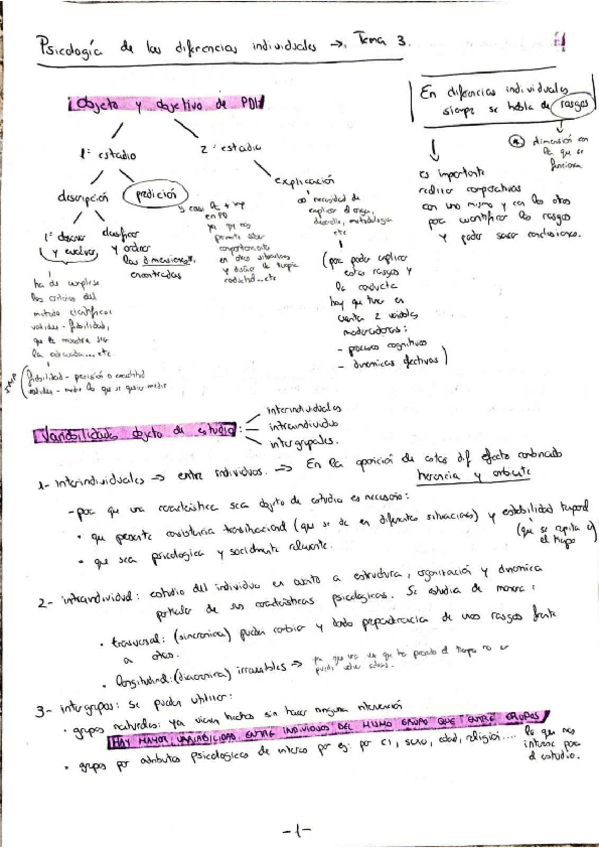 Psicología de las diferencias individuales → Tema 3.
Objeto y objetivo de PDI
En diferencias individuales
siempre se habla de rasgos
dimensión en
la que se
funciona
es importante
realizar comparativas
con uno mismo y con los otros
para cuantificar los rasgos
y poder sacar conclusiones.
1º estadio
2º estadio
descripción
predicción
explicación
1º observar
y evaluar,
clasificar
y ordenar
las dimensiones
encontradas
ha de cumplirse
los criterios del
método científico:
validez - fiabilidad,
que la muestra sea
la adecuada...etc
fiabilidad - precisión o exactitud
validez - medir lo que se quiere medir
en PD
ya que nos
permite saber
comportamiento
en otras situaciones
y diseñar la terapia
necesidad de
explicar el origen,
desarrollo, metodología
etc
(para poder explicar
estos rasgos y
la conducta
hay que tener en
cuenta 2 variables
moderadoras:
- procesos cognitivos
- dinámicas afectivas)
Variabilidades objeto de estudio:
interindividuales
intraindividuo
intergrupales.
1- Interindividuales → entre individuos. → En la aparición de estas dif efecto combinado
herencia y ambiente
- para que una característica sea objeto de estudio es necesario:
• que presente consistencia transituacional (que se dé en diferentes situaciones) y estabilidad temporal
(que se repita en
el tiempo
• que sea psicológica y socialmente relevante.
2- intraindividual: estudio del individuo en cuanto a estructura, organización y dinámica
particular de sus características psicológicas. Se estudia de manera:
• trasversal: (sincrónica) pueden cambiar y dando preponderancia de unos rasgos frente
a otros.
• longitudinal: (diacrónica) irreversibles → ya que una vez que ha pasado el tiempo no se
puede volver atrás.
3- intergrupos: se pueden utilizar:
• grupos naturales: ya vienen hechos sin hacer ninguna intervención
HAY MAYOR VARIABILIDAD ENTRE INDIVIDUOS DEL MISMO GRUPO QUE ENTRE GRUPOS
• grupos por atributos psicológicos de interés por ej: por CI, sexo, edad, religión.... lo que nos
interese para
el estudio.
-1-